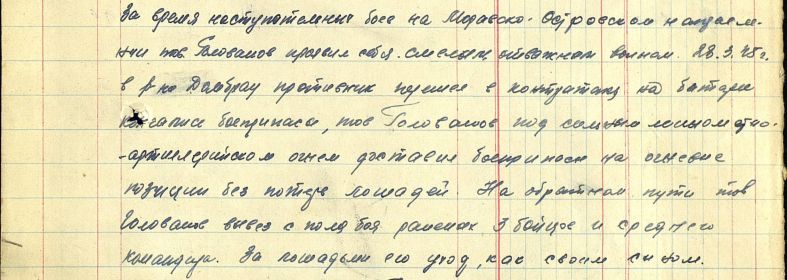 За время наступательных боев на Моравско-Островском направле-
нии тов. Голованов проявил себя смелым отважным воином. 28.3.45 г.
в р-не Домбрау противник перешел в контратаку на батарее
кончались боеприпасы, тов Голованов под сильным минометно-
-артиллерийском огнем доставил боеприпасы на огневые
позиции без потерь лошадей. На обратном пути тов
Голованов вывез с поля боя раненых 3 бойцов и среднего
командира. За лошадьми его уход, как своем сыном.